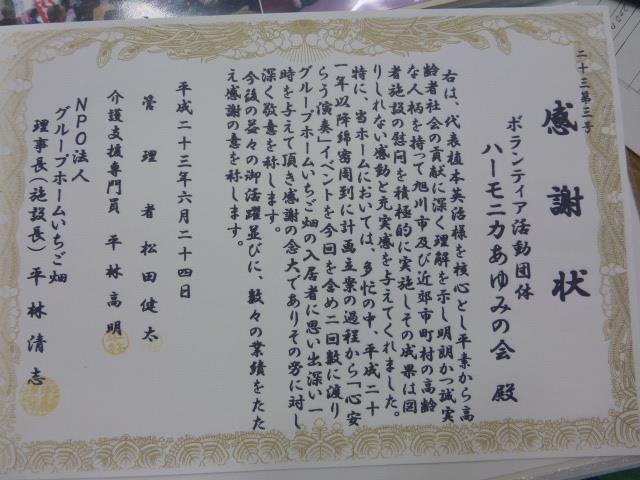 二十三第三号
感謝状
ボランティア活動団体
ハーモニカあゆみの会 殿
右は、代表植本英治様を核心とし平素から高
齢者社会の貢献に深く理解を示し明朗かつ誠実
な人柄を持って旭川市及び近郊市町村の高齢
者施設の慰問を積極的に実施しその成果は図
りしれない感動と充実感を与えてくれました。
特に、当ホームにおいては、多忙の中、平成二十
一年以降綿密周到に計画立案の過程から「心安
らう演奏」イベントを今回を含め二回数に渡り
グループホームいちご畑の入居者に思い出深い一
時を与えて頂き感謝の念大でありその労に対し
深く敬意を称します。
今後の益々の御活躍並びに、数々の業績をたた
え感謝の意を称します。
平成二十三年六月二十四日
管理者 松田健太
介護支援専門員 平林高明
NPO法人
グループホームいちご畑
理事長(施設長) 平林清志